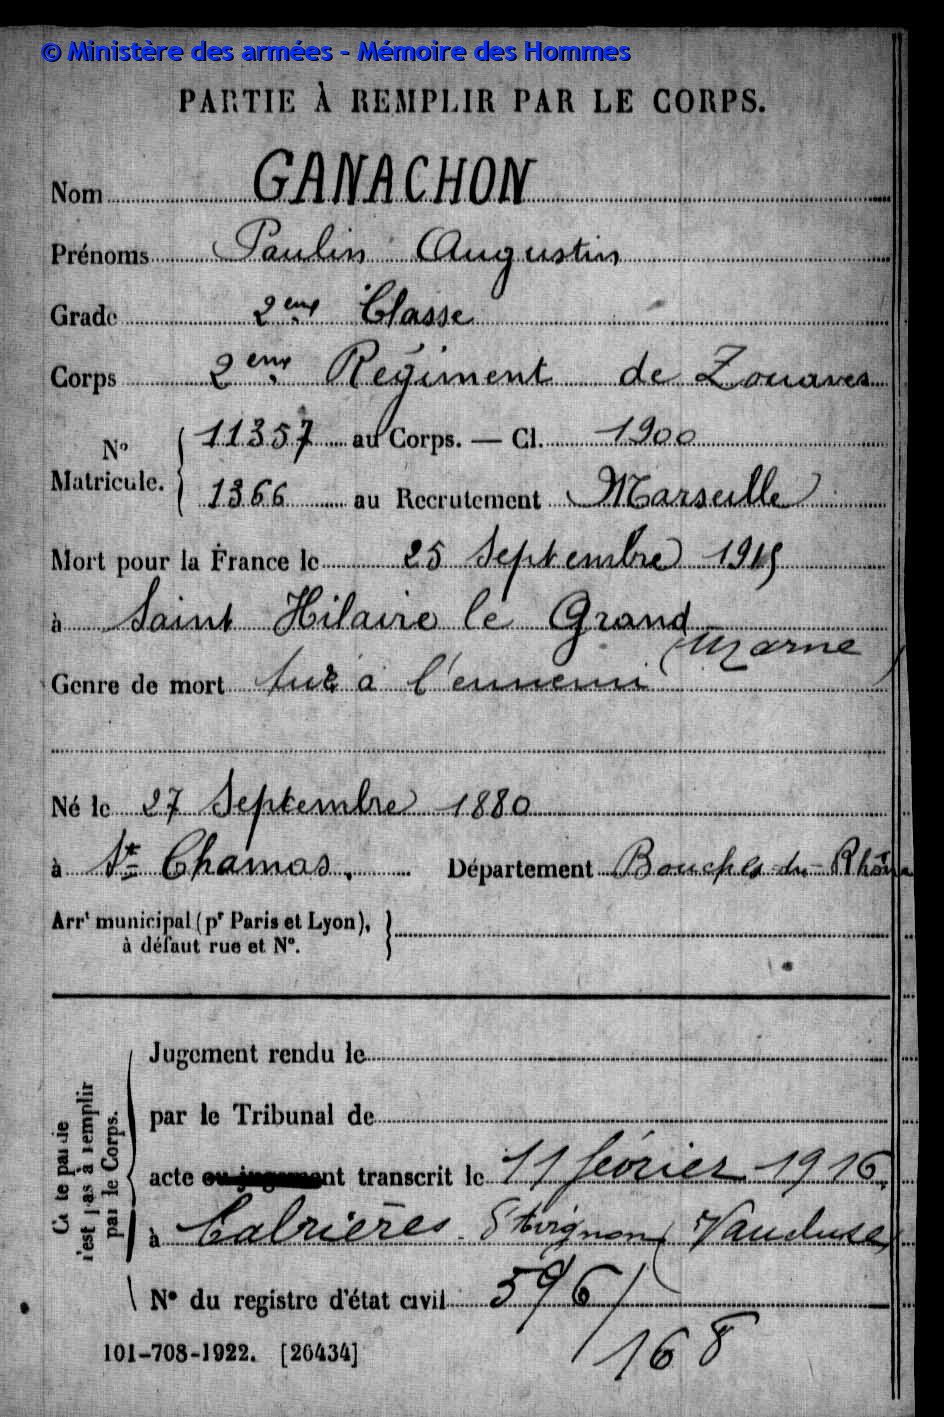 © Ministère des armées - Mémoire des Hommes
PARTIE À REMPLIR PAR LE CORPS.
Nom GANACHON
Prénoms Paulin Augustin
Grade 2eme Classe
Corps 2eme Régiment de Zouaves
No Matricule. { 11357 au Corps. — Cl. 1900
1366 au Recrutement Marseille
Mort pour la France le 25 Septembre 1915
à Saint Hilaire le Grand
(Marne)
Genre de mort tué à l'ennemi
Né le 27 Septembre 1880
à St Chamas. Département Bouches-du-Rhône
Arrt municipal (pr Paris et Lyon), }
à défaut rue et No.
Cette partie
n'est pas à remplir
par le Corps.
Jugement rendu le
par le Tribunal de
acte ou jugement transcrit le 11 février 1916
à Cabrières d'Avignon (Vaucluse)
No du registre d'état civil
596/168
101-708-1922. [26434]